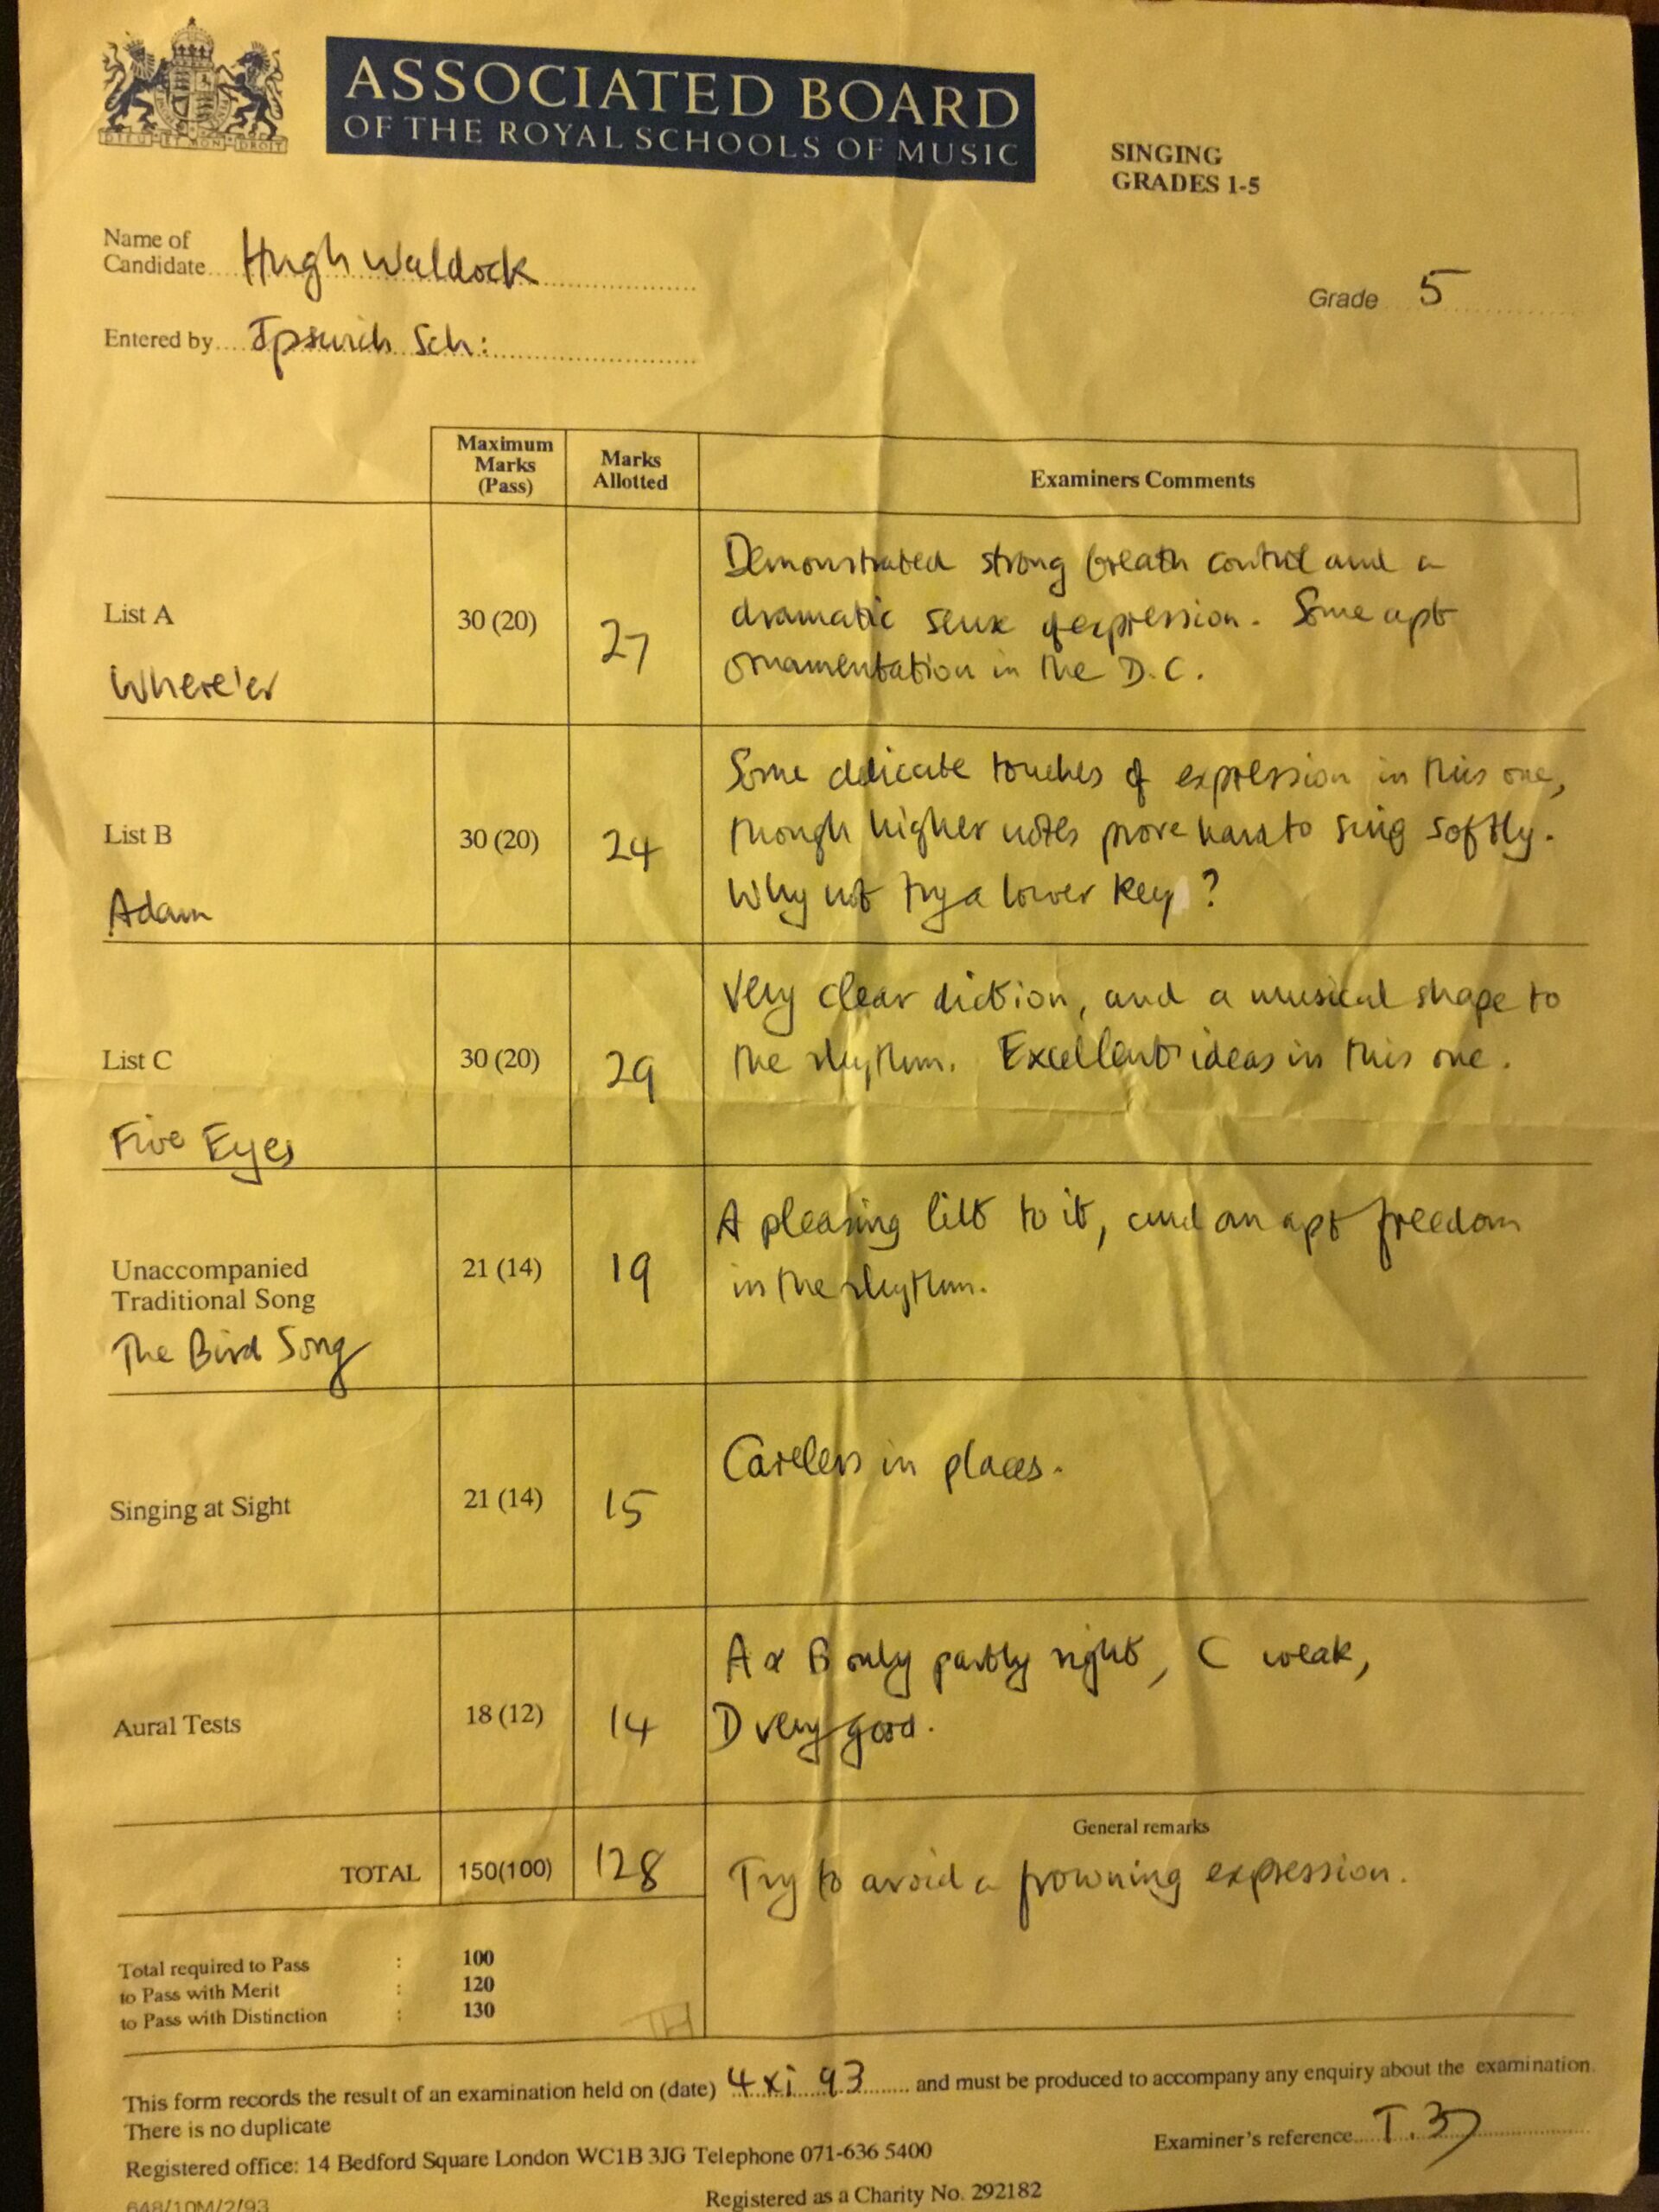 DIEU ET MON DROIT
ASSOCIATED BOARD
OF THE ROYAL SCHOOLS OF MUSIC
SINGING
GRADES 1-5
Name of
Candidate Hugh Waldock
Grade 5
Entered by Ipswich Sch:
Maximum
Marks
(Pass)
Marks
Allotted
Examiners Comments
List A
Where'er
30 (20)
27
Demonstrated strong breath control and a
dramatic sense of expression. Some apt
ornamentation in the D.C.
List B
Adam
30 (20)
24
Some delicate touches of expression in this one,
though higher notes prove hard to sing softly.
Why not try a lower key?
List C
Five Eyes
30 (20)
29
Very clear diction, and a musical shape to
the rhythm. Excellent ideas in this one.
Unaccompanied
Traditional Song
The Bird Song
21 (14)
19
A pleasing lilt to it, and an apt freedom
in the rhythm.
Singing at Sight
21 (14)
15
Careless in places.
Aural Tests
18 (12)
14
A & B only partly right, C weak,
D very good.
TOTAL
150(100)
128
General remarks
Try to avoid a frowning expression.
Total required to Pass : 100
to Pass with Merit : 120
to Pass with Distinction : 130
TH
This form records the result of an examination held on (date) 4 xi 93 and must be produced to accompany any enquiry about the examination.
There is no duplicate
Examiner's reference T.37
Registered office: 14 Bedford Square London WC1B 3JG Telephone 071-636 5400
648/10M/2/93
Registered as a Charity No. 292182